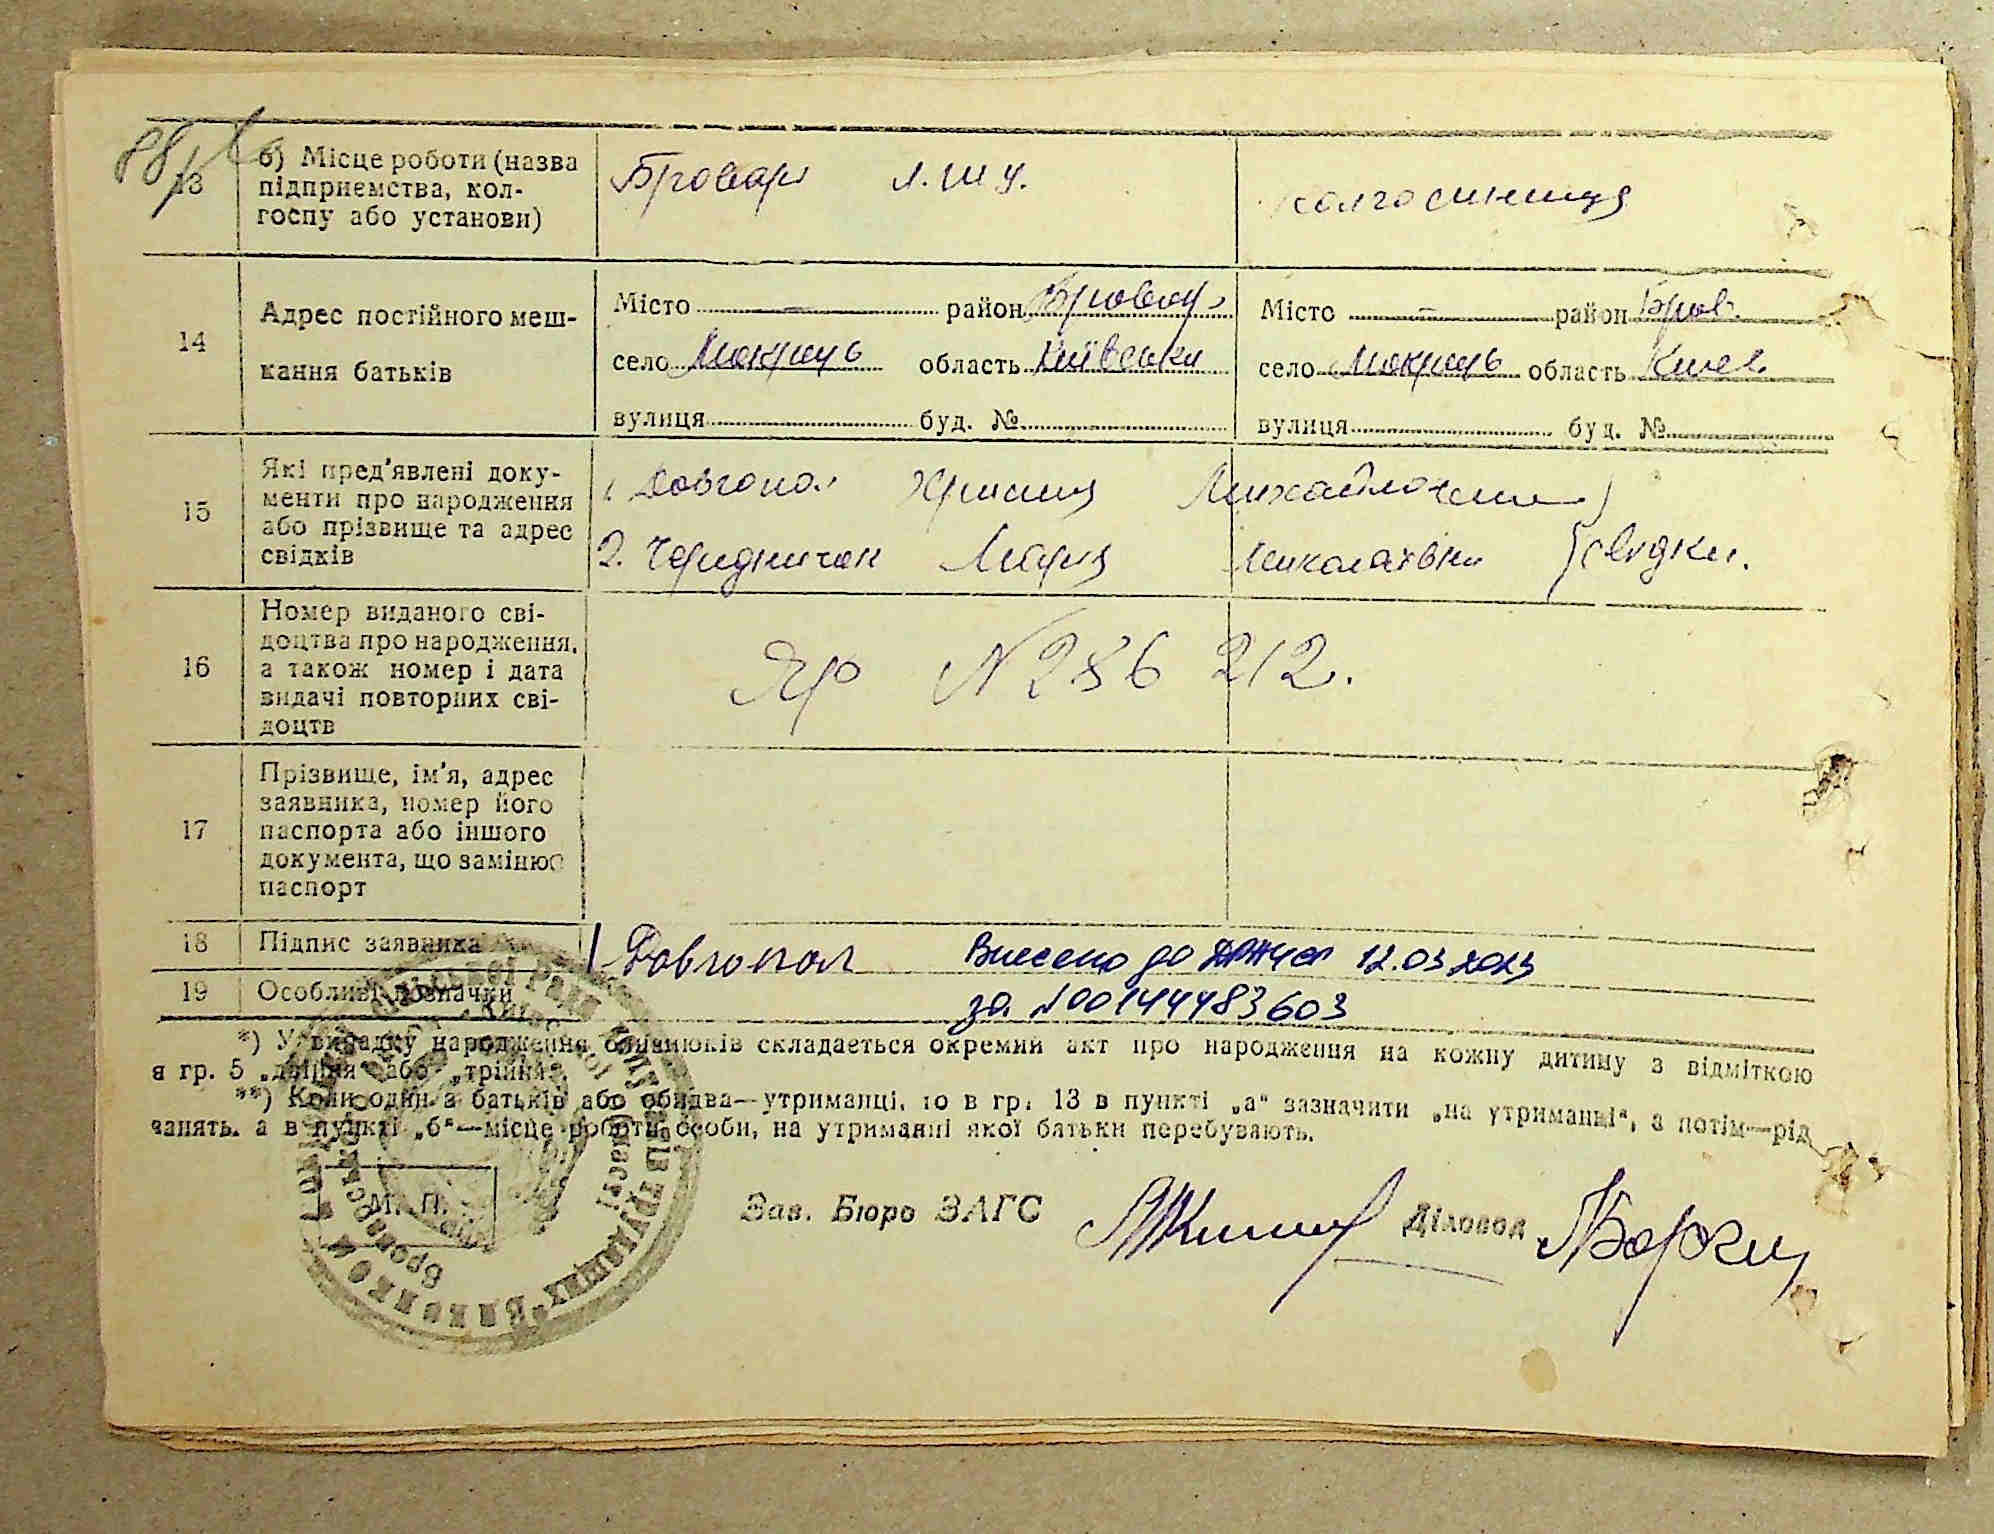 88
13
б) Місце роботи (назва
підприємства, кол-
госпу або установи)
Бровари л.ш у.
колгоспниця
14
Адрес постійного меш-
кання батьків
Місто — район Бровар.
село Мокрець область Київська
вулиця буд. №
Місто — район Бров.
село Мокрець область Киев.
вулиця буд. №
15
Які пред'явлені доку-
менти про народження
або прізвище та адрес
свідків
1. Довгопол Михайловна
2. Чередничек Мария Миколаївна свидки.
16
Номер виданого сві-
доцтва про народження,
а також номер і дата
видачі повторних сві-
доцтв
ЯР N 286 212.
17
Прізвище, ім'я, адрес
заявника, номер його
паспорта або іншого
документа, що замінює
паспорт
18 Підпис заявника Довгопол Внесено до 12.03.2023
19 Особливі позначки за №00144483603
*) У випадку народження близнюків складається окремий акт про народження на кожну дитину з відміткою
в гр. 5 „двійня“ або „трійня“.
**) Коли один з батьків або обидва—утриманці, то в гр. 13 в пункті „а“ зазначити „на утриманні“, а потім—рід
занять, а в пункті „б“—місце роботи особи, на утриманні якої батьки перебувають.
М. П.
Зав. Бюро ЗАГС
Діловод